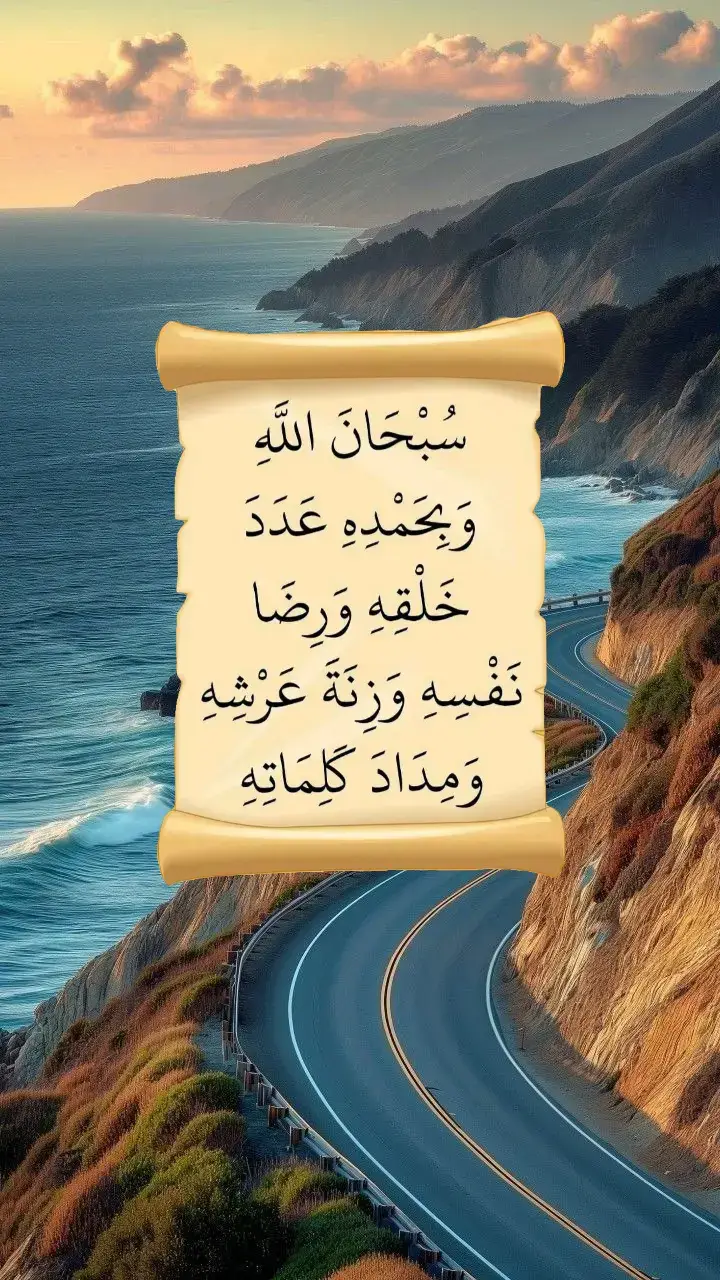 سُبْحَانَ اللَّهِ
وَبِحَمْدِهِ عَدَدَ
خَلْقِهِ وَرِضَا
نَفْسِهِ وَزِنَةَ عَرْشِهِ
وَمِدَادَ كَلِمَاتِهِ